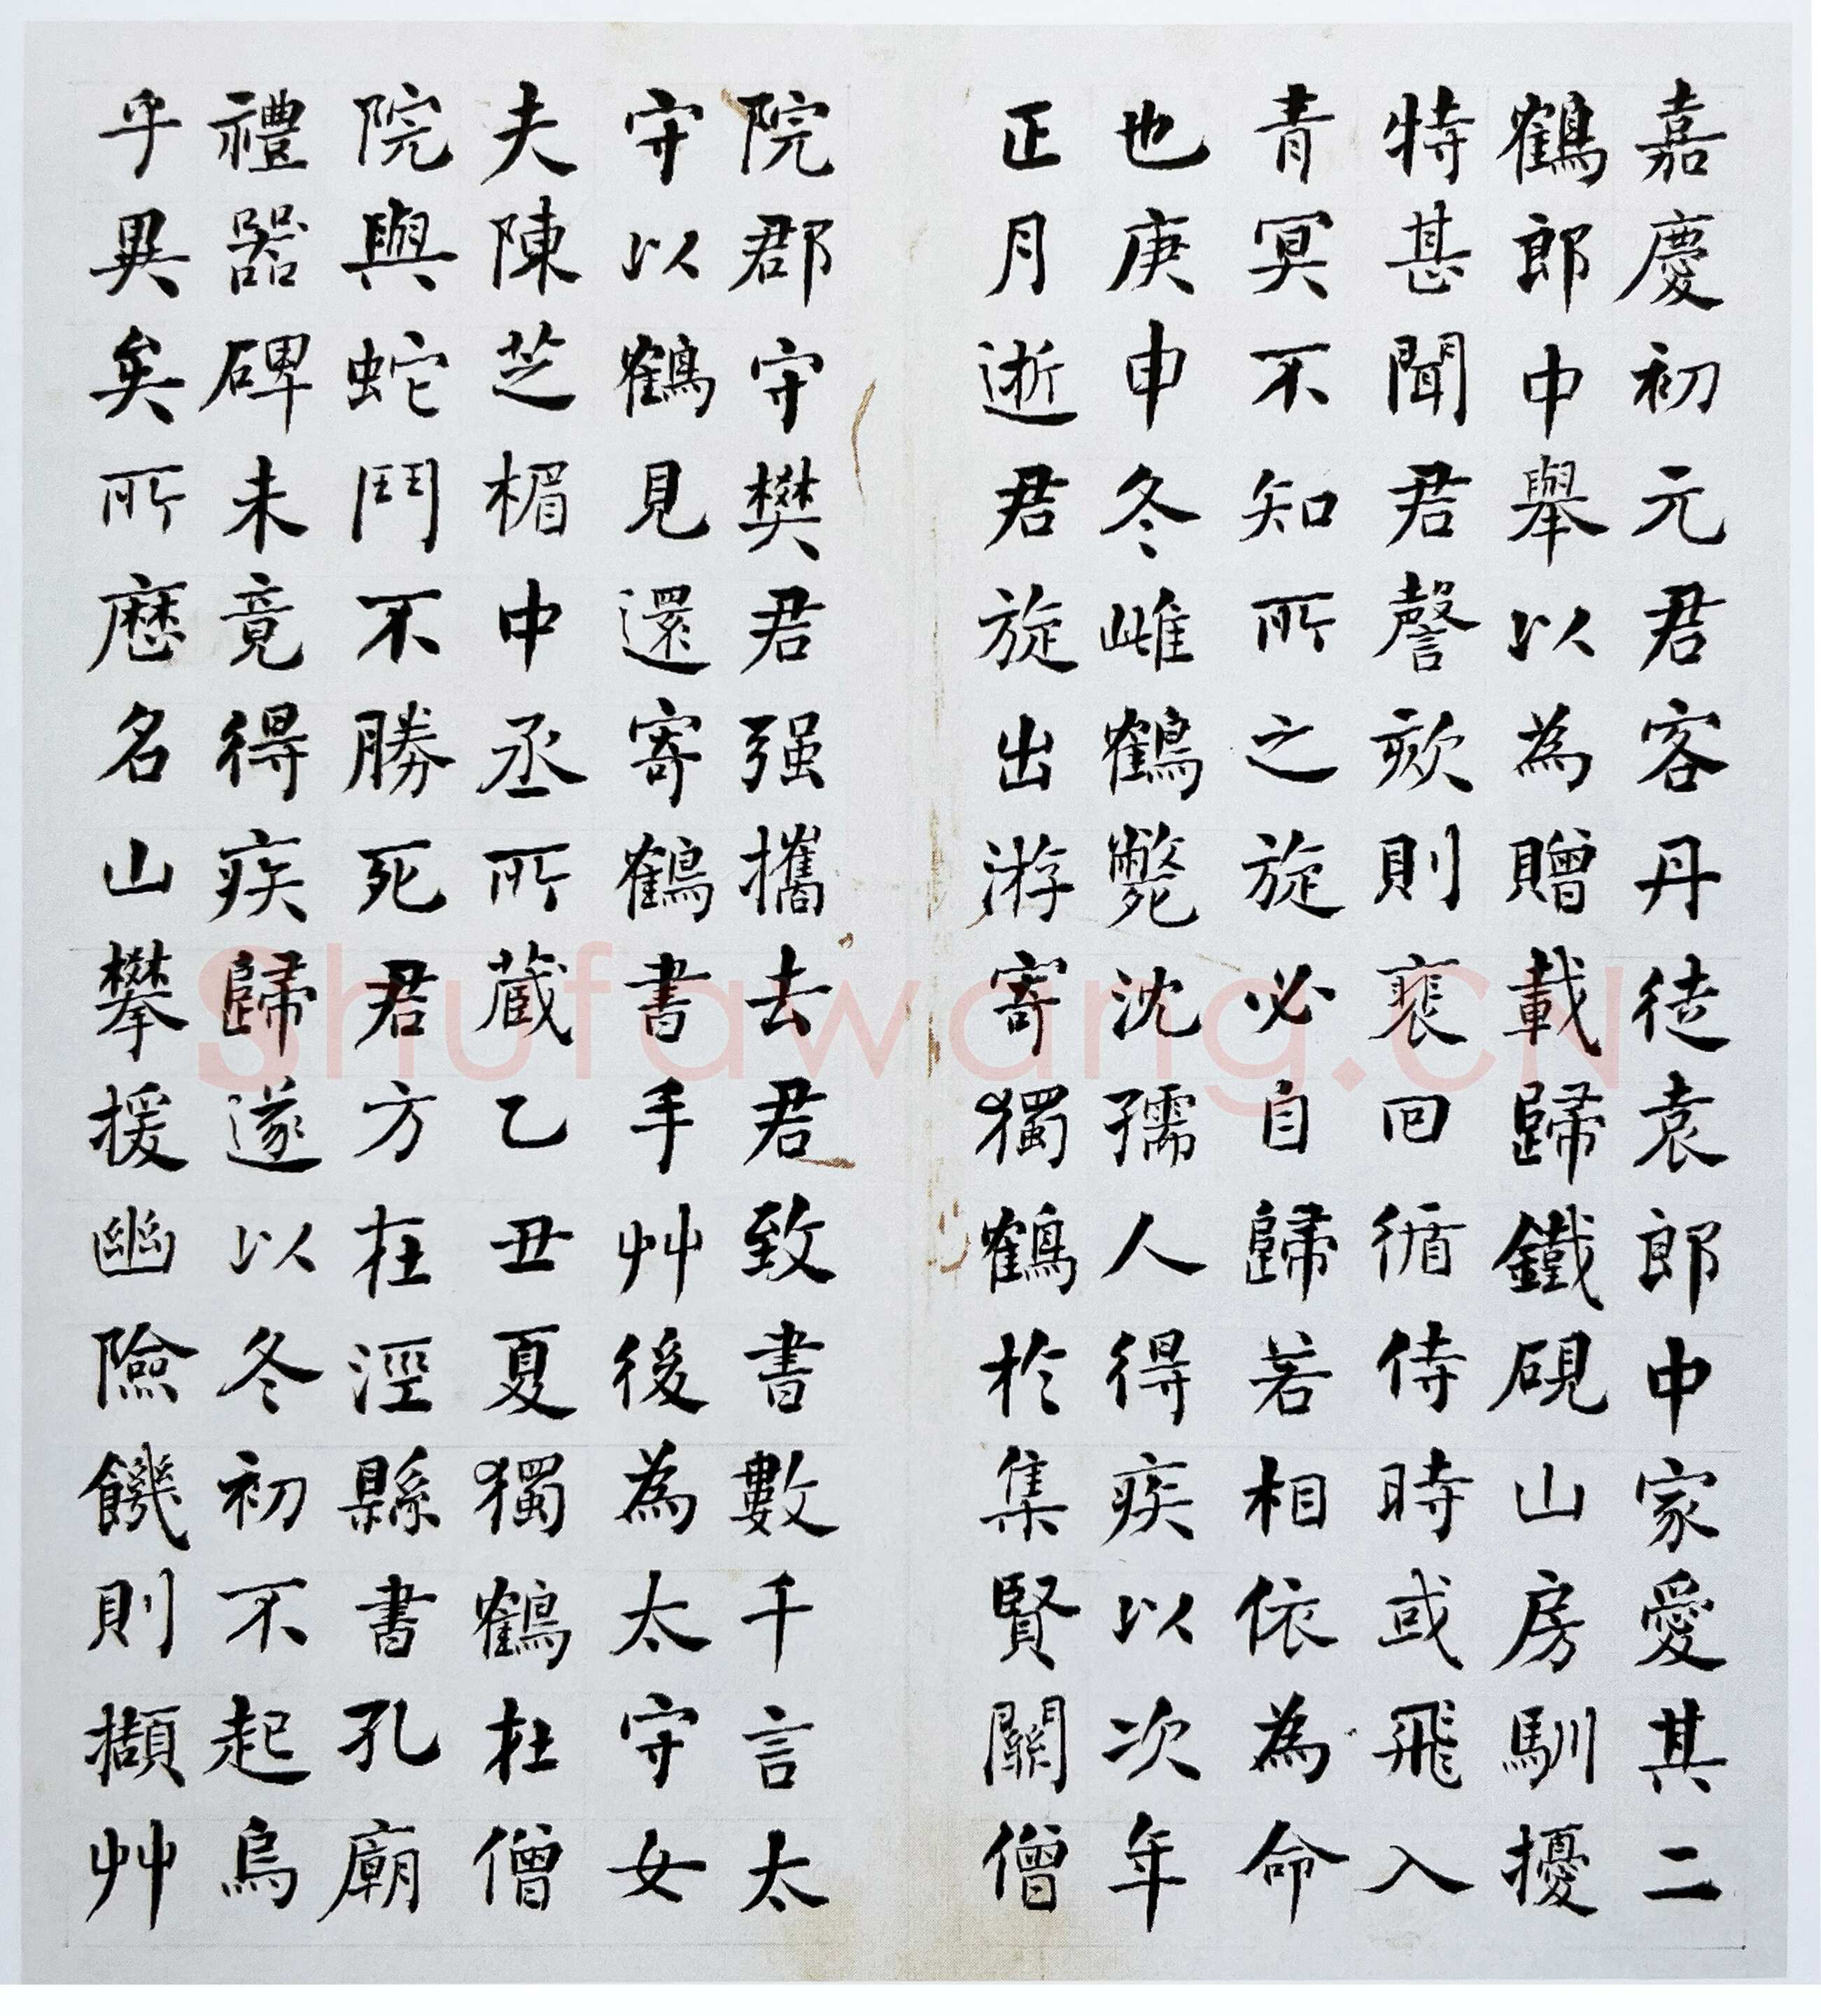 嘉慶初元君客丹徒袁郎中家愛其二
鶴郎中舉以為贈載歸鐵硯山房馴擾
特甚聞君謦欬則裵回循侍時或飛入
青冥不知所之旋必自歸若相依為命
也庚申冬雌鶴斃沈孺人得疾以次年
正月逝君旋出游寄獨鶴於集賢關僧
院郡守樊君强攜去君致書數千言太
守以鶴見還寄鶴書手艸後為太守女
夫陳芝楣中丞所蔵乙丑夏獨鶴在僧
院與蛇鬥不勝死君方在涇縣書孔廟
禮器碑未竟得疾歸遂以冬初不起烏
乎異矣所歷名山攀援幽險饑則擷艸
Shufawang.CN